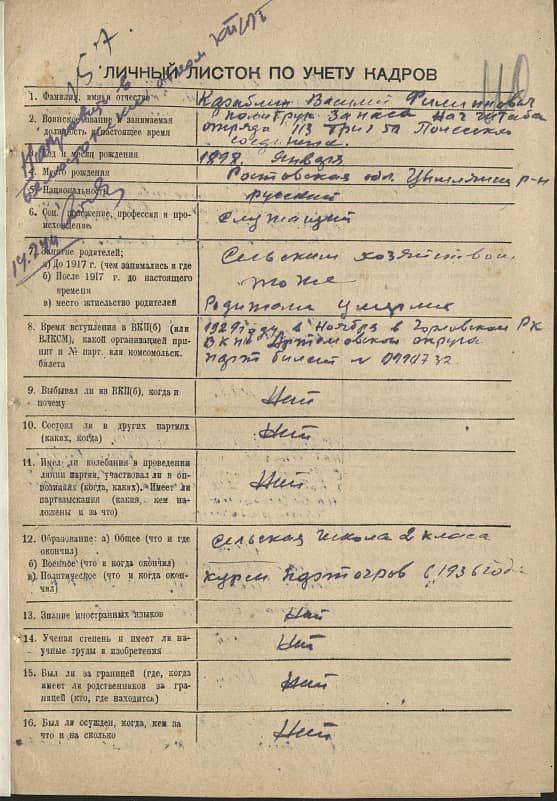 157.
Направлен в
14.7.44
110
ЛИЧНЫЙ ЛИСТОК ПО УЧЕТУ КАДРОВ
1. Фамилия, имя и отчество
Василий Филиппович
2. Воинское звание и занимаемая
должность в настоящее время
политрук запаса Нач штаба
отряда 113
3. Год и месяц рождения
1898. Января
4. Место рождения
Ростовская обл. р-н
5. Национальность
русский
6. Соц. положение, профессия и про-
исхождение
Служащий
7. Занятие родителей;
а) До 1917 г. (чем занимались и где
б) После 1917 г. до настоящего
времени
в) место жительство родителей
Сельским хозяйством
тоже
Родители умерли
8. Время вступления в ВКП(б) (или
ВЛКСМ), какой организацией при-
нят и № парт. или комсомольск.
билета
в Ноября в Горловском РК
ВКПб Артемовского округа
парт билет N
9. Выбывал ли из ВКП(б), когда и
почему
Нет
10. Состоял ли в других партиях
(каких, когда)
Нет
11. Имел ли колебания в проведении
линии партии, участвовал ли в оп-
позициях (когда, каких). Имеет ли
партвзыскания (какия, кем на-
ложены и за что)
Нет
12. Образование: а) Общее (что и где
окончил)
б) Военное (что и когда окончил)
в) Политическое (что и когда окон-
чил)
Сельская школа 2 класа
курсы парторгов в 1936 году
13. Знание иностранных языков
Нет
14. Ученая степень и имеет ли на-
учные труды и изобретения
Нет
15. Был ли за границей (где, когда
имеет ли родственников за гра-
ницей (кто, где находится)
Нет
16. Был ли осужден, когда, кем за
что и на сколько
Нет